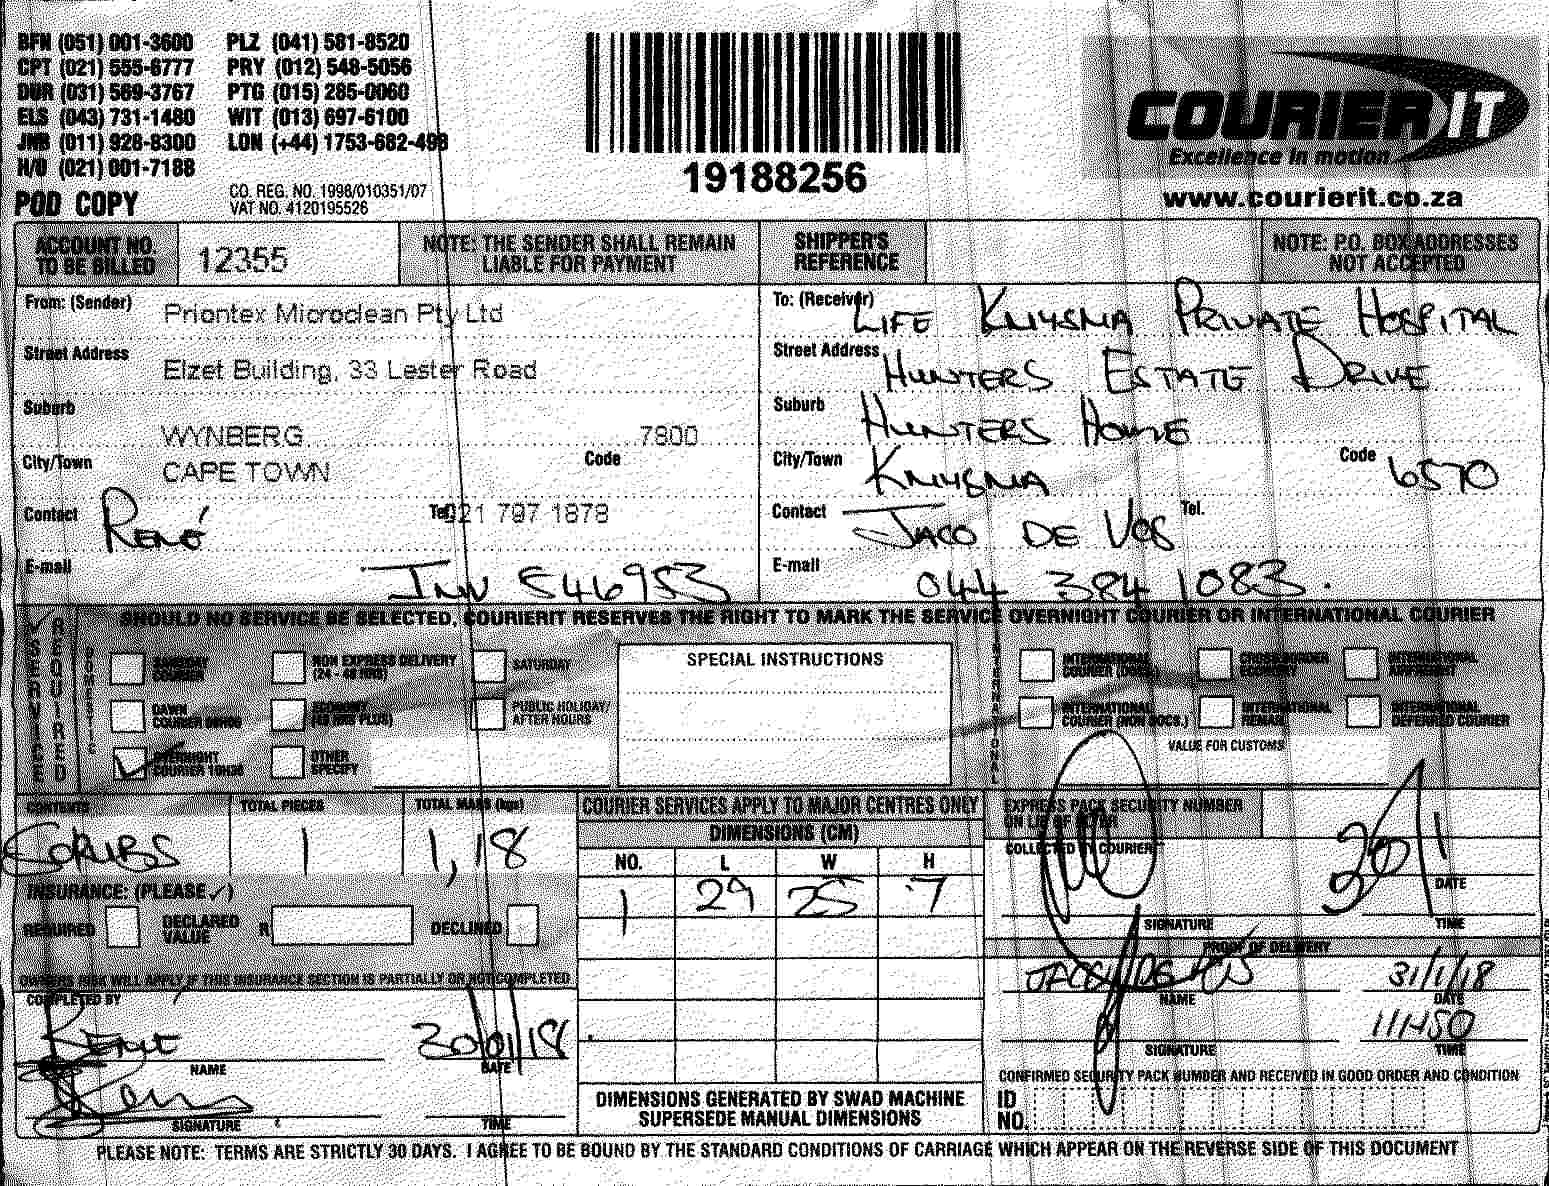 BFN (051) 001-3600 PLZ (041) 581-8520
CPT (021) 555-6777 PRY (012) 548-5056
DUR (031) 569-3767 PTG (015) 285-0060
ELS (043) 731-1480 WIT (013) 697-6100
JNB (011) 928-8300 LON (+44) 1753-682-498
H/O (021) 001-7188
POD COPY
CO. REG. NO. 1998/010351/07
VAT NO. 4120195526
19188256
COURIER IT
Excellence in motion
www.courierit.co.za
ACCOUNT NO. TO BE BILLED 12355
NOTE: THE SENDER SHALL REMAIN LIABLE FOR PAYMENT
SHIPPER'S REFERENCE
NOTE: P.O. BOX ADDRESSES NOT ACCEPTED
From: (Sender) Priontex Microclean Pty Ltd
Street Address Elzet Building, 33 Lester Road
Suburb WYNBERG 7800
City/Town CAPE TOWN Code
Contact René Tel 021 797 1878
E-mail INV 546953
To: (Receiver) LIFE KNYSNA PRIVATE HOSPITAL
Street Address HUNTERS ESTATE DRIVE
Suburb HUNTERS HOME
City/Town KNYSNA Code 6570
Contact JACO DE VOS Tel.
E-mail 044 384 1083.
SERVICE REQUIRED
SHOULD NO SERVICE BE SELECTED, COURIERIT RESERVES THE RIGHT TO MARK THE SERVICE OVERNIGHT COURIER OR INTERNATIONAL COURIER
DOMESTIC
SAMEDAY COURIER
NON EXPRESS DELIVERY (24 - 48 HRS)
SATURDAY
DAWN COURIER
ECONOMY (48 HRS PLUS)
PUBLIC HOLIDAY/ AFTER HOURS
OVERNIGHT COURIER 10H30
OTHER SPECIFY
SPECIAL INSTRUCTIONS
INTERNATIONAL
INTERNATIONAL COURIER (DOCS.)
CROSS BORDER ECONOMY
INTERNATIONAL AIRFREIGHT
INTERNATIONAL COURIER (NON DOCS.)
INTERNATIONAL REMAIL
INTERNATIONAL DEFERRED COURIER
VALUE FOR CUSTOMS
CONTENTS TOTAL PIECES TOTAL MASS (kgs)
SCRUBS 1 1,18
INSURANCE: (PLEASE ✓)
REQUIRED DECLARED VALUE R DECLINED
OWNERS RISK WILL APPLY IF THIS INSURANCE SECTION IS PARTIALLY OR NOT COMPLETED
COMPLETED BY
RENE 30/01/18
NAME DATE
SIGNATURE TIME
COURIER SERVICES APPLY TO MAJOR CENTRES ONLY
DIMENSIONS (CM)
NO. L W H
1 29 25 7
DIMENSIONS GENERATED BY SWAD MACHINE
SUPERSEDE MANUAL DIMENSIONS
EXPRESS PACK SECURITY NUMBER
ON LID OF FLYER
COLLECTED BY COURIER
30/1
DATE
SIGNATURE TIME
PROOF OF DELIVERY
JACO DE VOS 31/1/18
NAME DATE
11H50
SIGNATURE TIME
CONFIRMED SECURITY PACK NUMBER AND RECEIVED IN GOOD ORDER AND CONDITION
ID NO.
PLEASE NOTE: TERMS ARE STRICTLY 30 DAYS. I AGREE TO BE BOUND BY THE STANDARD CONDITIONS OF CARRIAGE WHICH APPEAR ON THE REVERSE SIDE OF THIS DOCUMENT